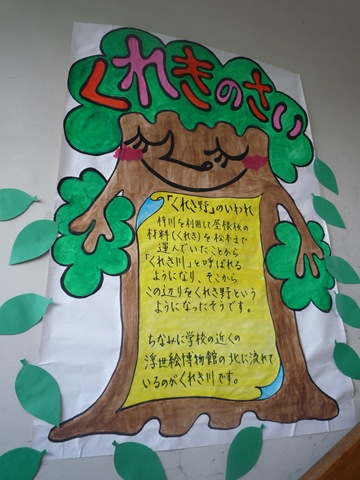 くれきのさい
「くれき野」のいわれ
梓川を利用して屋根板の
材料（くれき）を松本まで
運んでいたことから
「くれき川」と呼ばれる
ようになり、そこから
この辺りをくれき野という
ようになったそうです。
ちなみに学校の近くの
浮世絵博物館の北に流れて
いるのがくれき川です。